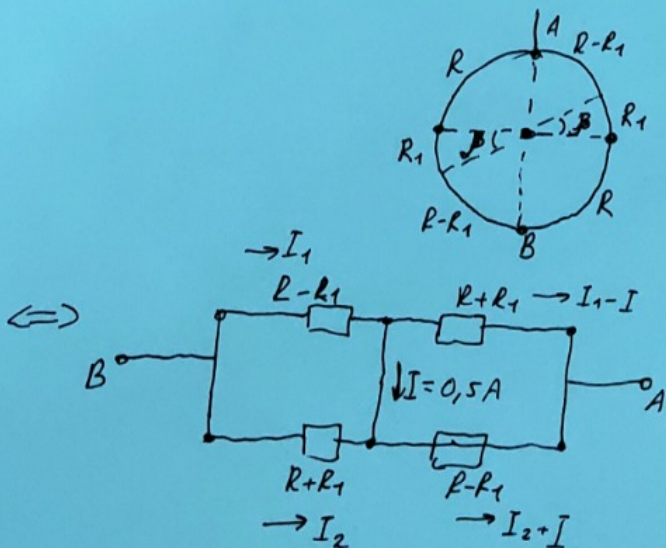 A
R R-R1
β β R1
R1
R-R1 R
B
→I1
R-R1 R+R1 → I1-I
<=>
B ↓I=0,5A A
R+R1 R-R1
→ I2 → I2+I